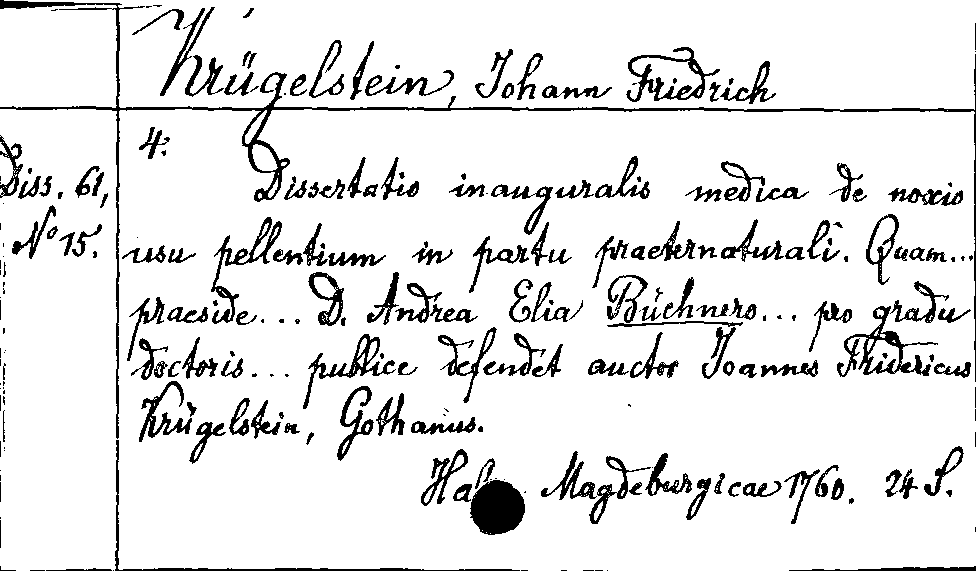 Krügelstein, Johann Friedrich
4:
Diss. 61,
No 15.
Dissertatio inauguralis medica de noxio
usu pellentium in partu praeternaturali. Quam...
praeside... D. Andrea Elia Büchnero... pro gradu
doctoris... publice defendet auctor Joannes Fridericus
Krügelstein, Gothanus.
Magdeburgicae 1760. 24 S.